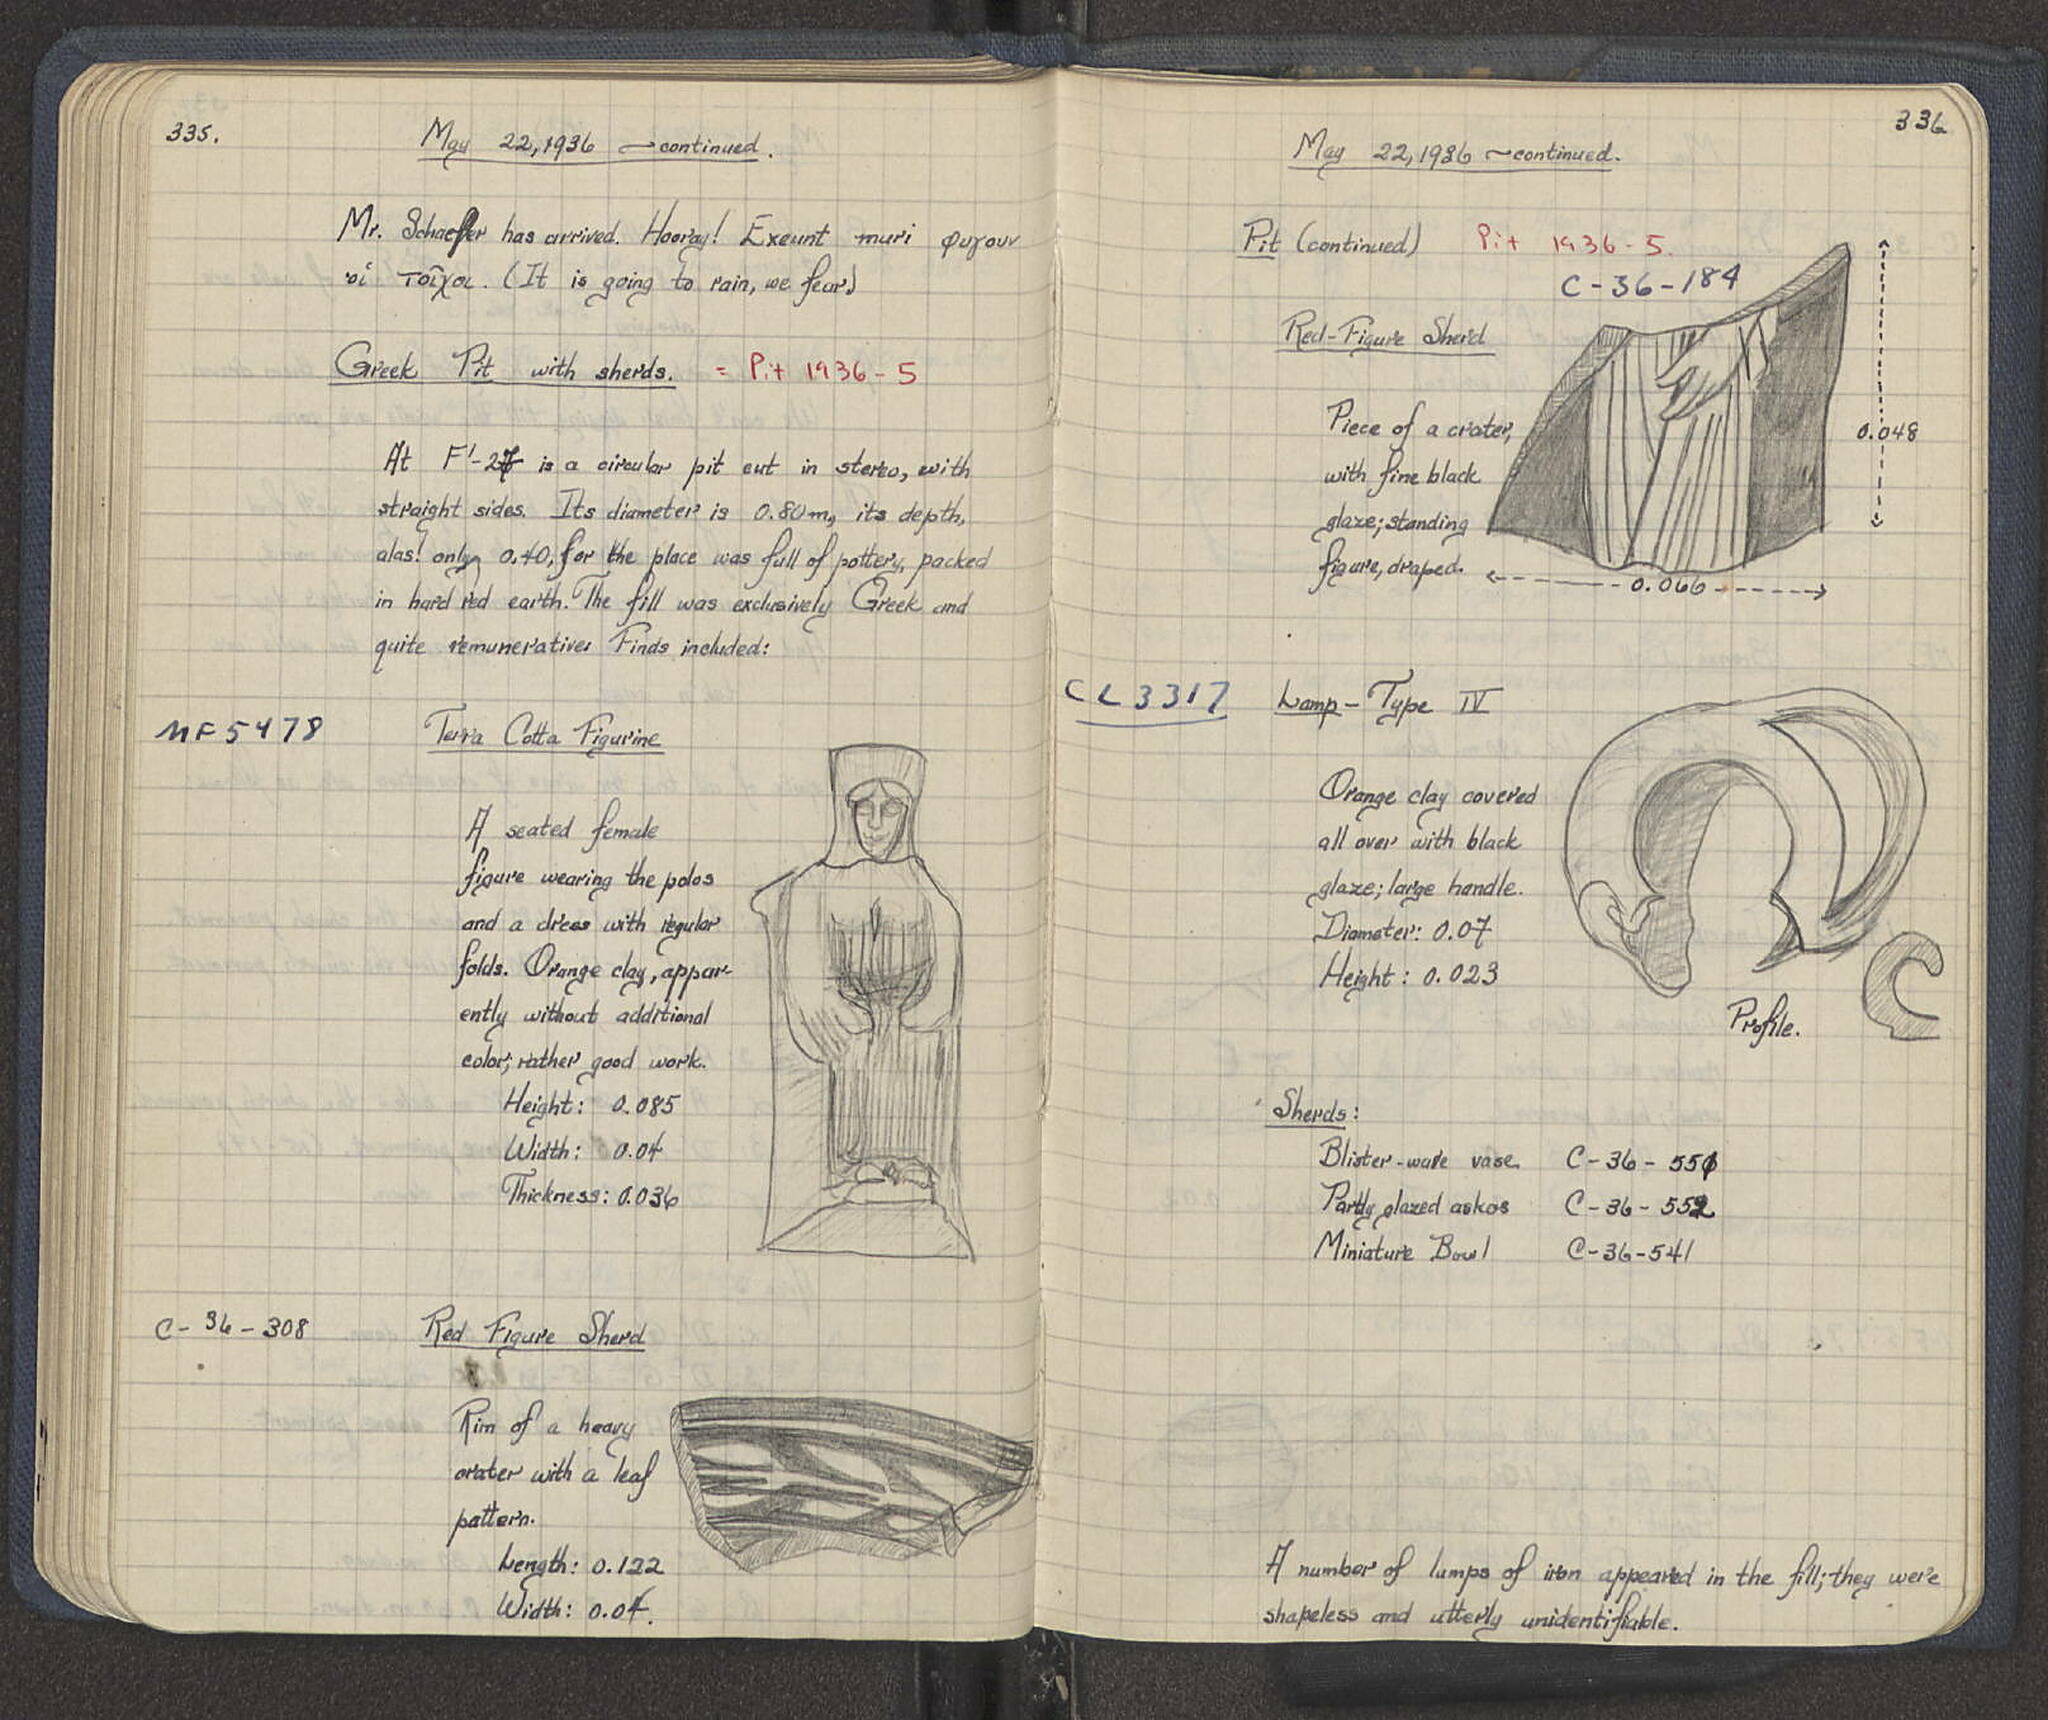 335.
May 22, 1936 — continued.
Mr. Schaeffer has arrived. Hooray! Exeunt muri φυγουν
οἱ τοῖχοι. (It is going to rain, we fear.)
Greek Pit with sherds. = Pit 1936-5
At is a circular pit cut in stereo, with
straight sides. Its diameter is 0.80m, its depth,
alas! only 0.40, for the place was full of pottery, packed
in hard red earth. The fill was exclusively Greek and
quite remunerative. Finds included:
MF 5478
Terra Cotta Figurine
A seated female
figure wearing the polos
and a dress with regular
folds. Orange clay, appar-
ently without additional
color; rather good work.
Height: 0.085
Width: 0.04
Thickness: 0.036
C-36-308
Red Figure Sherd
Rim of a heavy
crater with a leaf
pattern.
Length: 0.122
Width: 0.04.
336
May 22, 1936 — continued.
Pit (continued) Pit 1936-5.
C-36-184
Red-Figure Sherd
Piece of a crater,
with fine black
glaze; standing
figure, draped.
0.048
0.066
CL 3317
Lamp - Type IV
Orange clay covered
all over with black
glaze; large handle.
Diameter: 0.07
Height: 0.023
Profile.
Sherds:
Blister-ware vase C-36-551
Partly glazed askos C-36-552
Miniature Bowl C-36-541
A number of lumps of iron appeared in the fill; they were
shapeless and utterly unidentifiable.